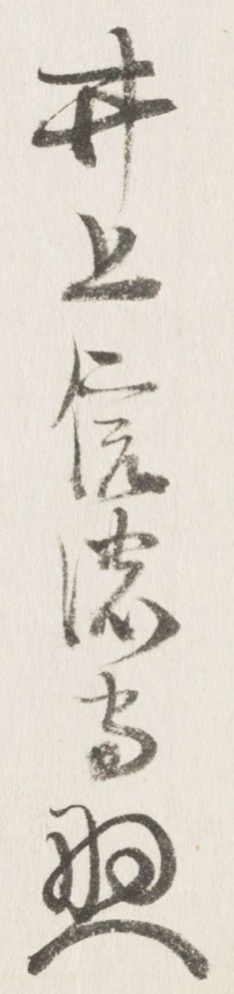 井上信濃守